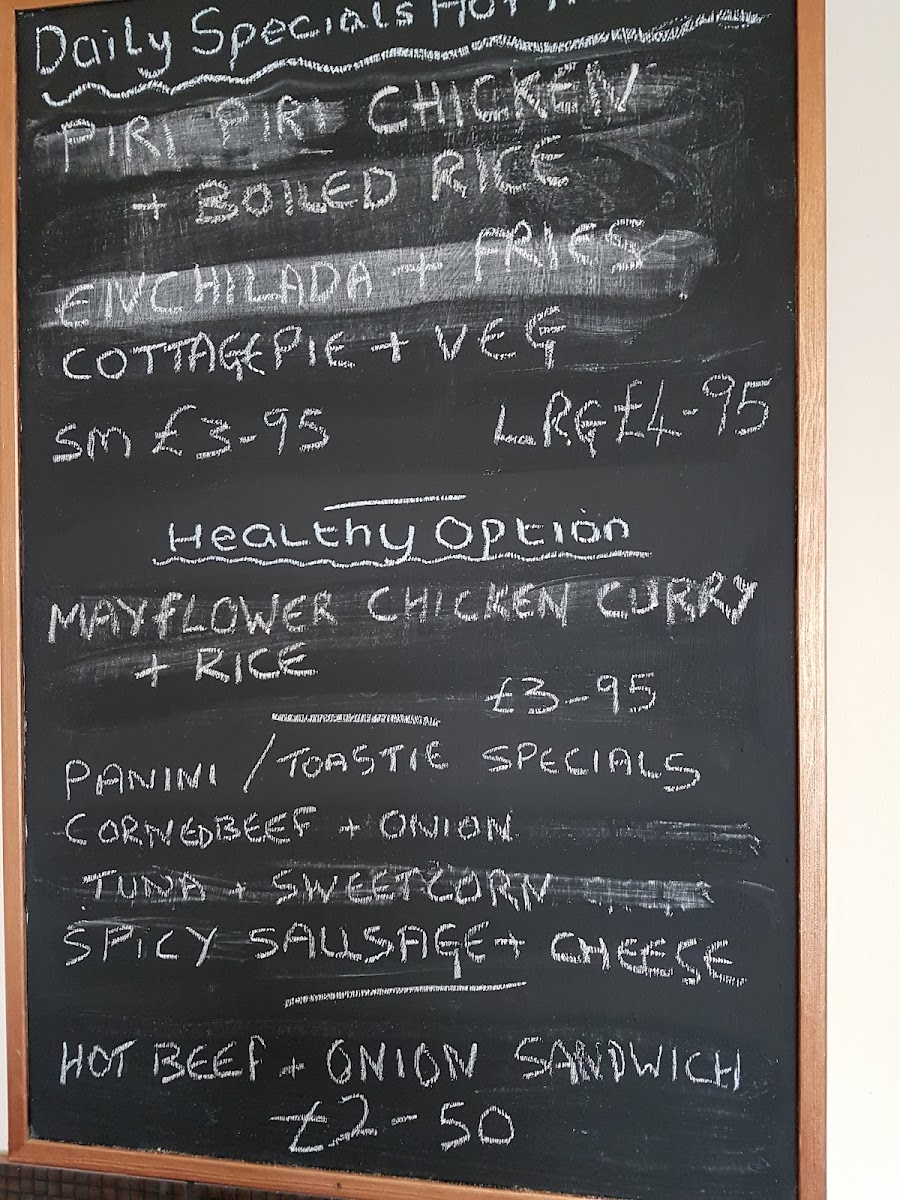 Daily Specials Hot
PIRI PIRI CHICKEN
+ BOILED RICE
ENCHILADA + FRIES
COTTAGE PIE + VEG
SM £3-95 LRG £4-95
Healthy Option
MAYFLOWER CHICKEN CURRY
+ RICE
£3-95
PANINI / TOASTIE SPECIALS
CORNEDBEEF + ONION
TUNA + SWEETCORN
SPICY SAUSAGE + CHEESE
HOT BEEF + ONION SANDWICH
£2-50